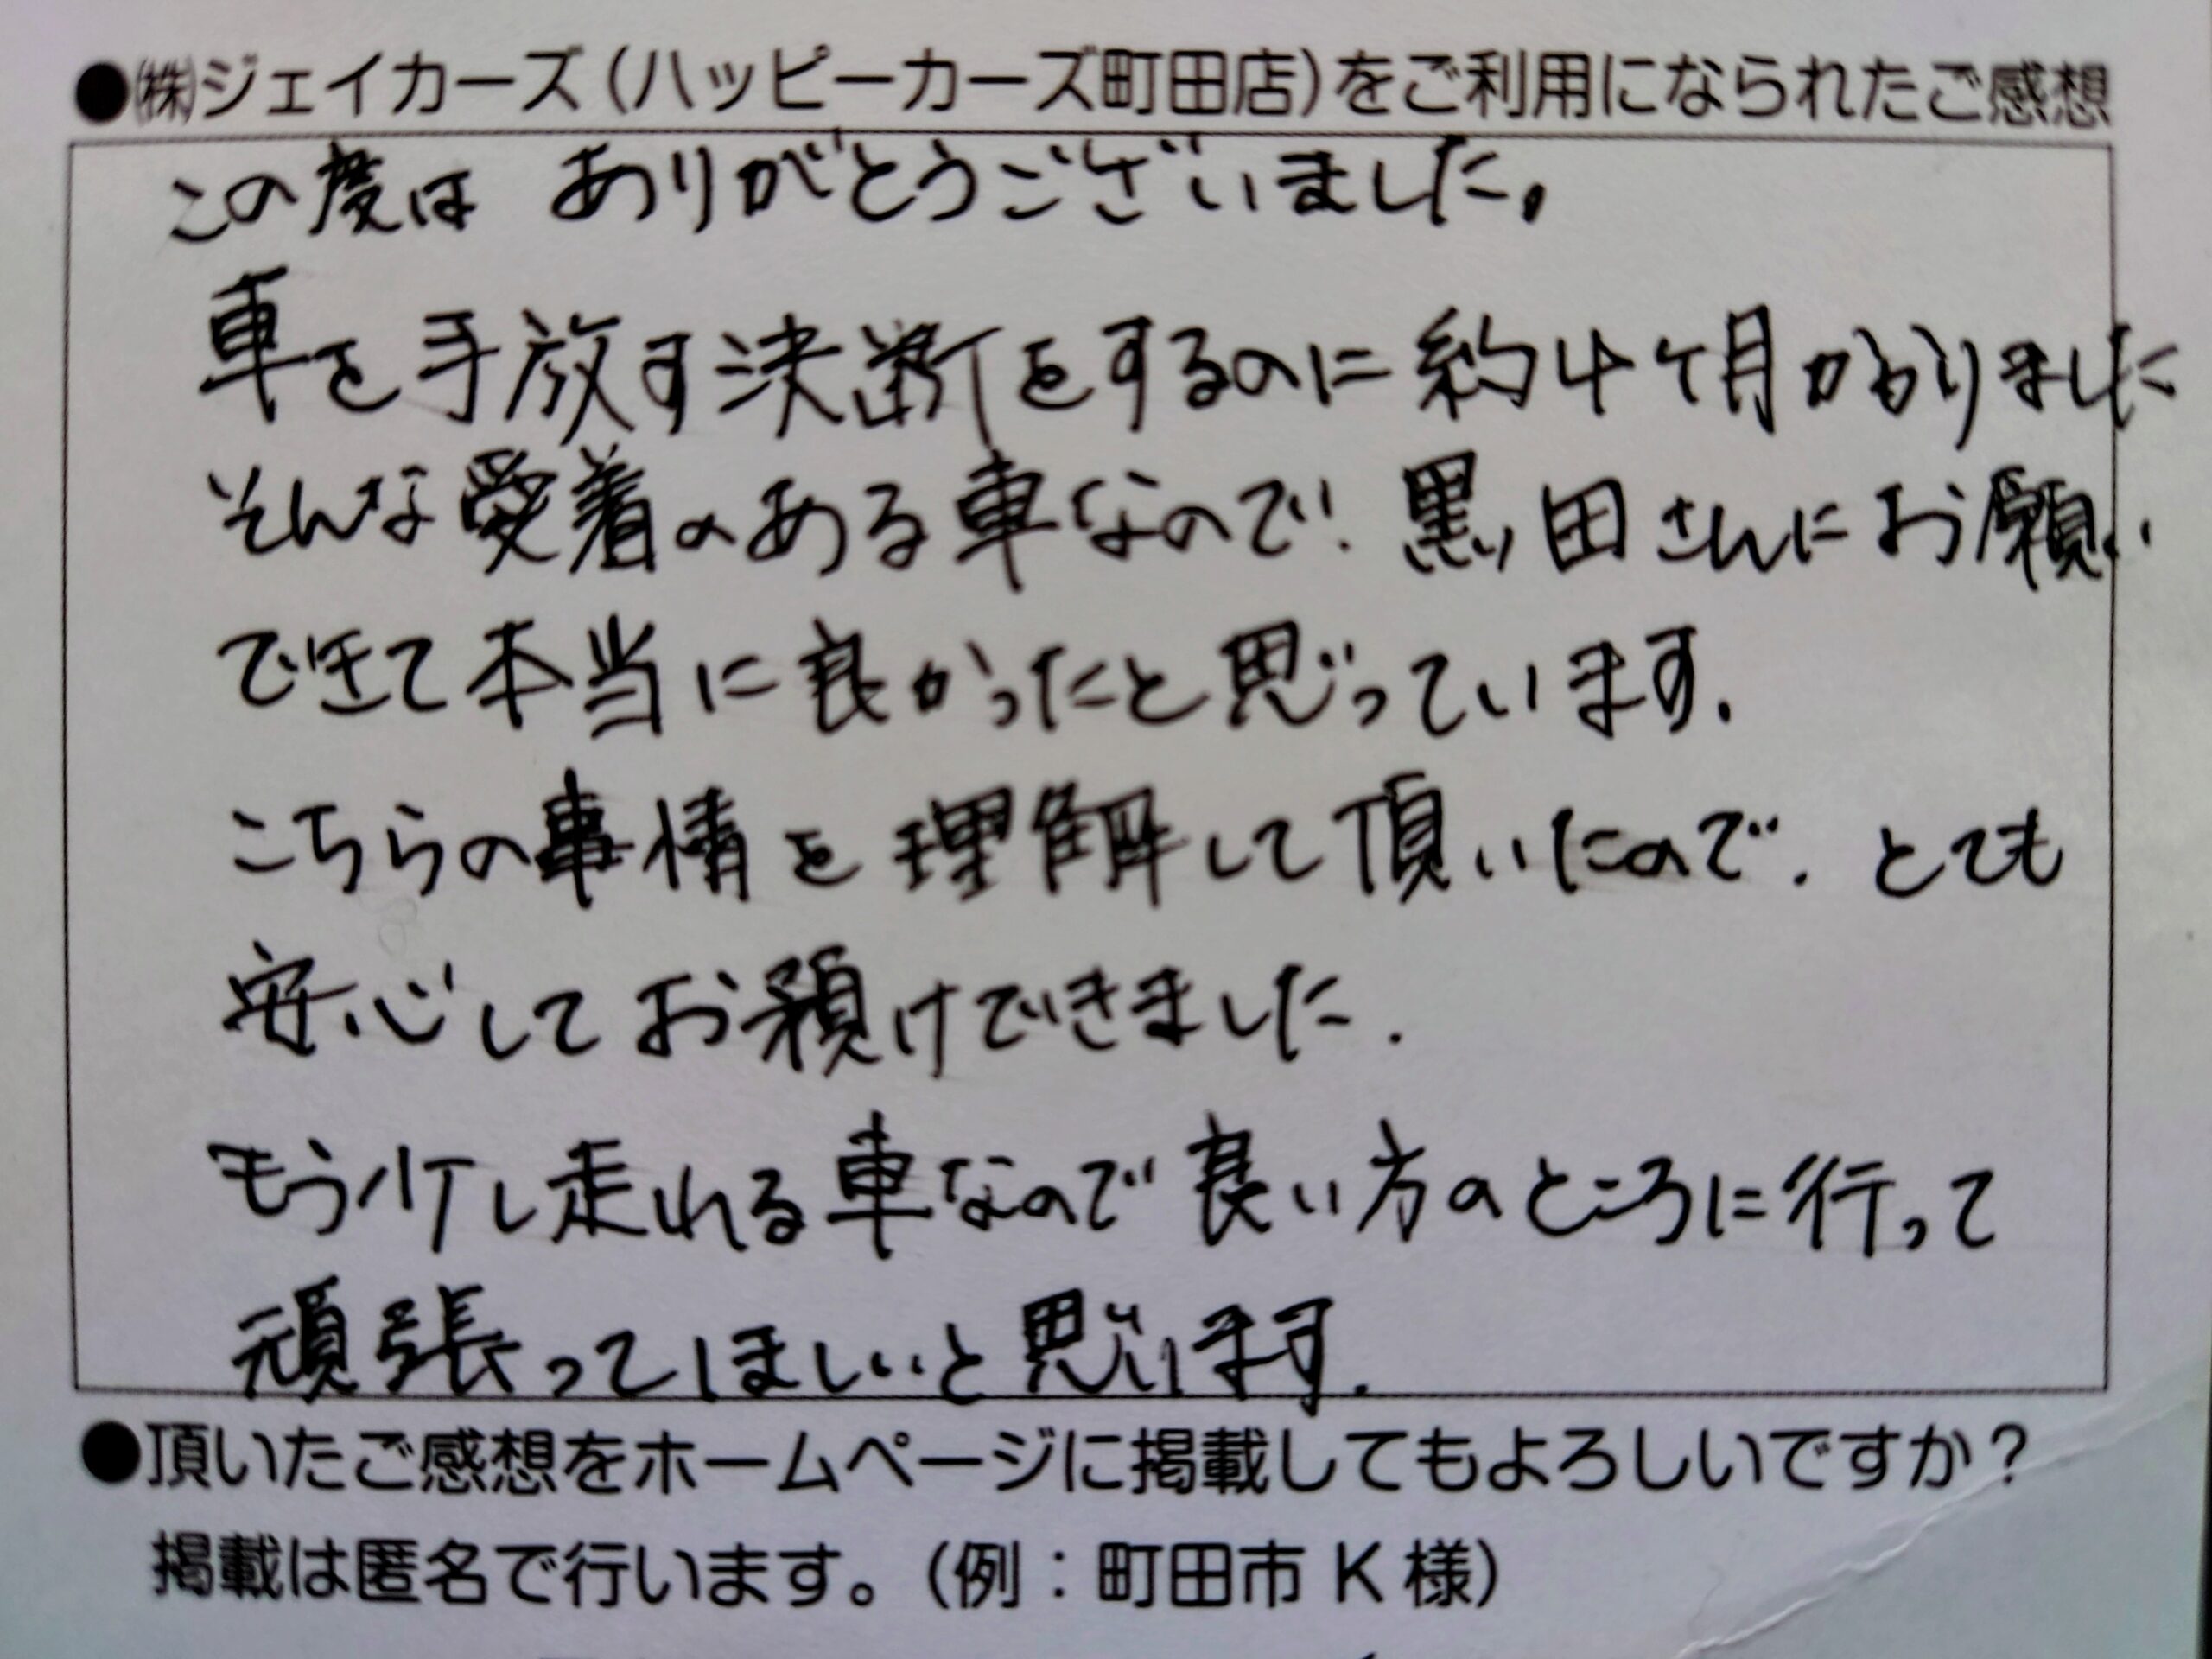 ●㈱ジェイカーズ（ハッピーカーズ町田店）をご利用になられたご感想
この度は ありがとうございました。
車を手放す決断をするのに約4ヶ月かかりました
そんな愛着のある車なので、黒田さんにお願い
できて本当に良かったと思っています。
こちらの事情を理解して頂いたので、とても
安心してお預けできました。
もう少し走れる車なので良い方のところに行って
頑張ってほしいと思います。
●頂いたご感想をホームページに掲載してもよろしいですか？
掲載は匿名で行います。（例：町田市 K 様）